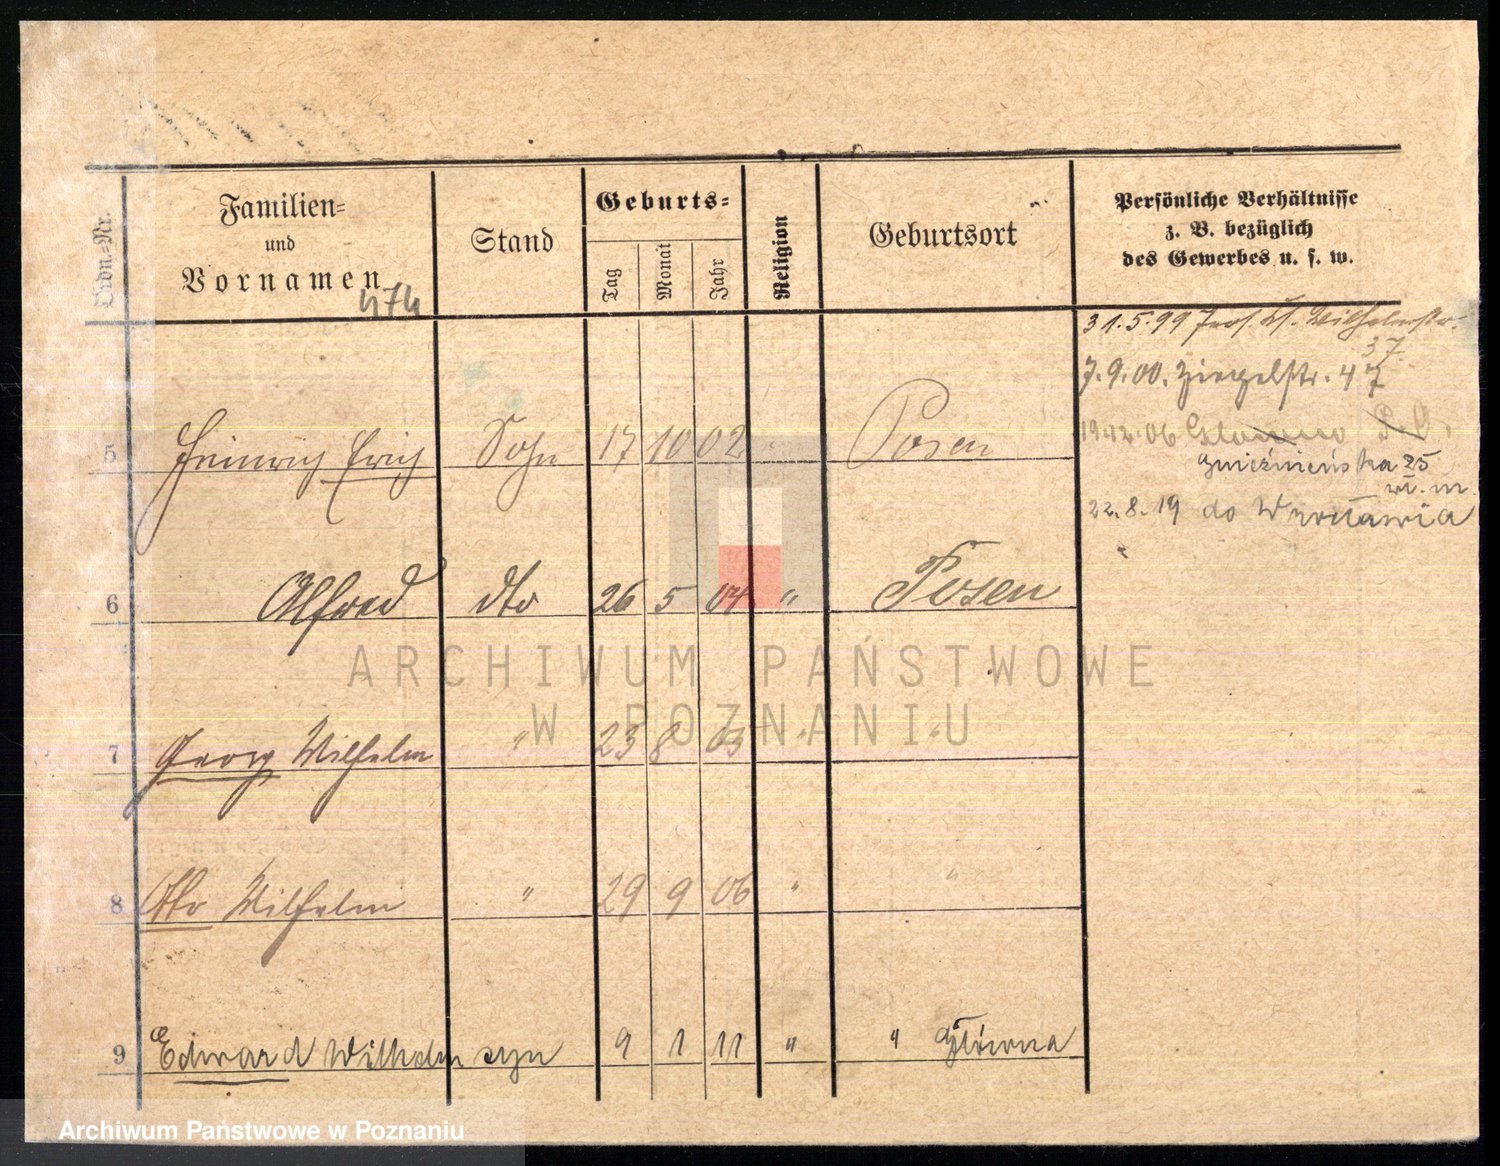 Ordn.-Nr.
Familien-
und
Vornamen
474
Stand
Geburts-
Tag
Monat
Jahr
Religion
Geburtsort
Persönliche Verhältnisse
z. B. bezüglich
des Gewerbes u. s. w.
31.5.99 Wilhelmstr.
37.
7.9.00. Ziegelstr. 47
06 Glowno
Gnieźnieńska 25
22.8.19 do Wrocławia
5 Heinrich Erich Sohn 17 10 02 Posen
6 Alfred dto 26 5 04 " Posen
7 Georg Wilhelm " 23 8 03 " "
8 Otto Wilhelm " 29 9 06 " "
9 Edward Wilhelm syn 9 1 11 " " Główna
ARCHIWUM PAŃSTWOWE
W POZNANIU
Archiwum Państwowe w Poznaniu